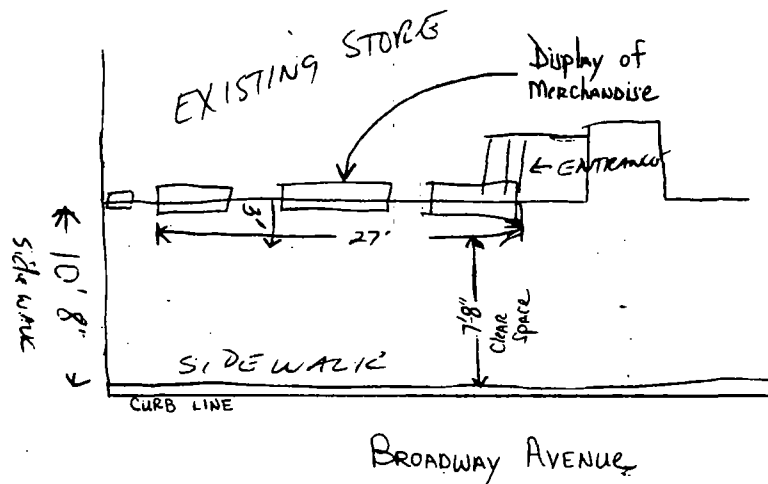 EXISTING STORE
Display of
Merchandise
← ENTRANCE
3'
27'
10' 8"
Sidewalk
7'8"
Clear
Space
SIDEWALK
CURB LINE
BROADWAY AVENUE